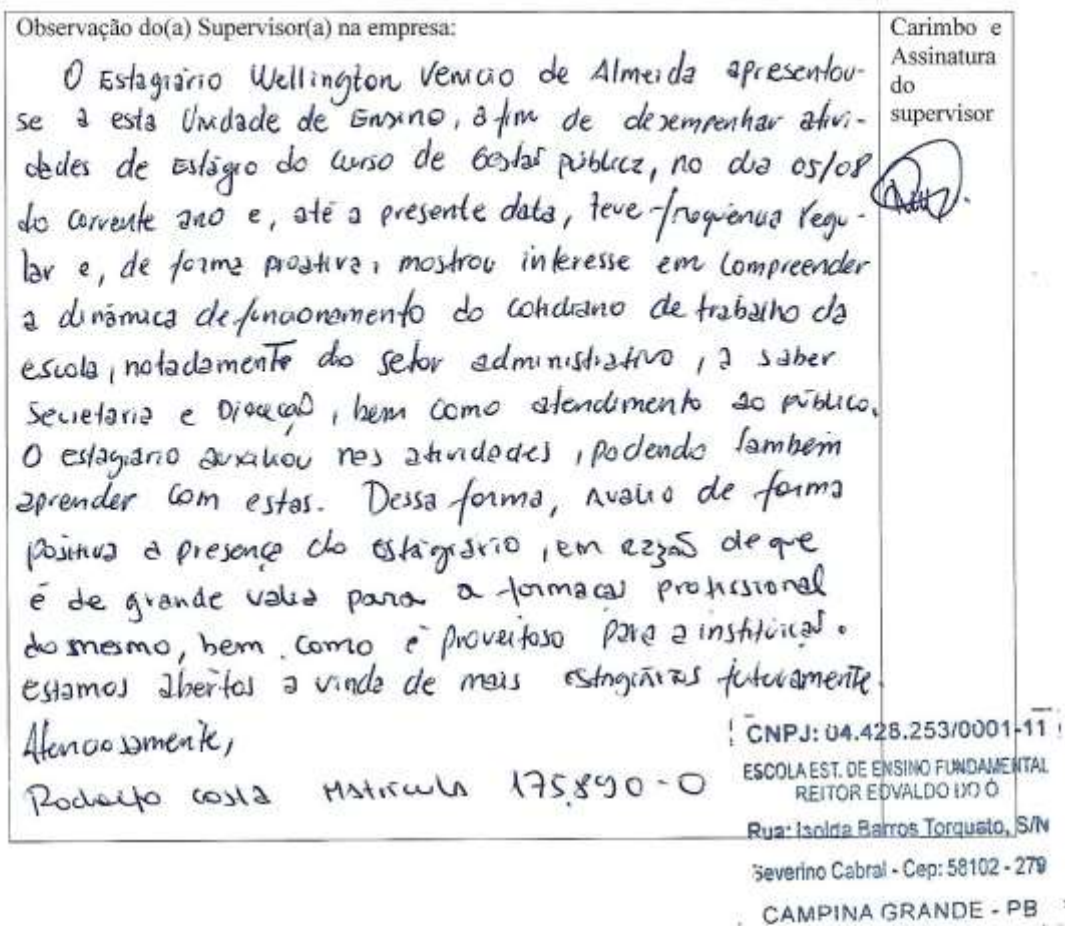 Observação do(a) Supervisor(a) na empresa:
O Estagiário Wellington Venicio de Almeida apresentou-
se a esta Unidade de Ensino, a fim de desempenhar ativi-
dades de Estágio do curso de Gestão pública, no dia 05/08
do corrente ano e, até a presente data, teve frequência regu-
lar e, de forma proativa, mostrou interesse em compreender
a dinâmica de funcionamento do cotidiano de trabalho da
escola, notadamente do setor administrativo, a saber
Secretaria e Direção, bem como atendimento ao público.
O estagiário auxiliou nas atividades, podendo também
aprender com estas. Dessa forma, avalio de forma
positiva a presença do estagiário, em razão de que
é de grande valia para a formação profissional
do mesmo, bem como é proveitoso para a instituição.
estamos abertos a vinda de mais estagiários futuramente.
Atenciosamente,
Rodolfo Costa Matrícula 175.890-0
Carimbo e
Assinatura
do
supervisor
CNPJ: 04.428.253/0001-11
ESCOLA EST. DE ENSINO FUNDAMENTAL
REITOR EDVALDO DO Ó
Rua: Isolda Barros Torquato, S/N
Severino Cabral - Cep: 58102 - 279
CAMPINA GRANDE - PB